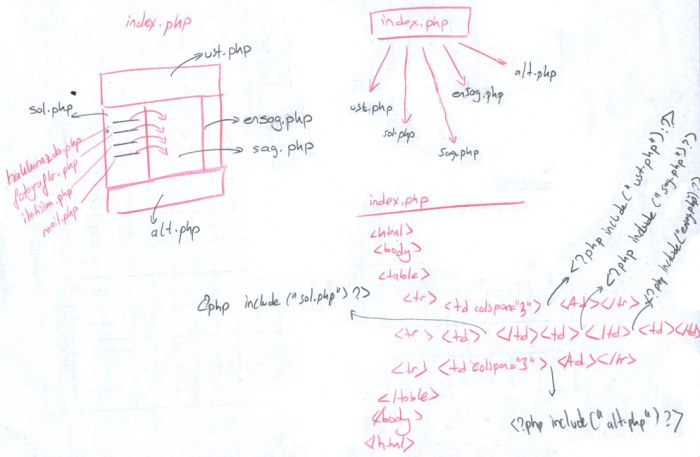 index.php
ust.php
sol.php
ensag.php
sag.php
hakkimizda.php
fotograflr.php
iletisim.php
mail.php
alt.php
index.php
ust.php
sol.php
sag.php
ensag.php
alt.php
index.php
<html>
<body>
<table>
<tr> <td colspan="3"> </td></tr>
<?php include("ust.php");?>
<tr> <td> </td><td> </td> <td></td>
<?php include("sol.php")?>
<?php include("sag.php")?>
<tr> <td colspan="3"> </td></tr>
<?php include("alt.php")?>
</table>
</body>
</html>